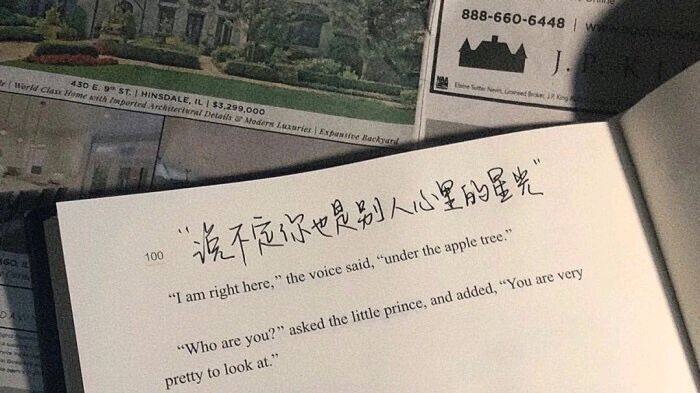 888-660-6448 |
430 E. 9th ST. | HINSDALE, IL | $3,299,000
| World Class Home with Imported Architectural Details & Modern Luxuries | Expansive Backyard
J. P. K
Elaine Sutter Nevin, Licensed Broker, J.P. King
100
“说不定你也是别人心里的星光”
“I am right here,” the voice said, “under the apple tree.”
“Who are you?” asked the little prince, and added, “You are very
pretty to look at.”